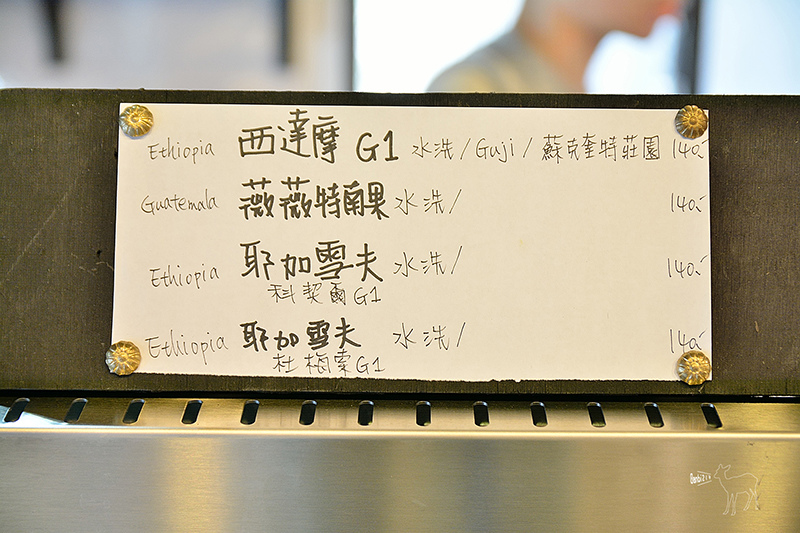 Ethiopia 西達摩 G1 水洗/Guji/蘇克奎特莊園 140.-
Guatemala 薇薇特南果 水洗/ 140.-
Ethiopia 耶加雪夫 水洗/ 140.-
科契爾G1
Ethiopia 耶加雪夫 水洗/ 140.-
杜梅索G1